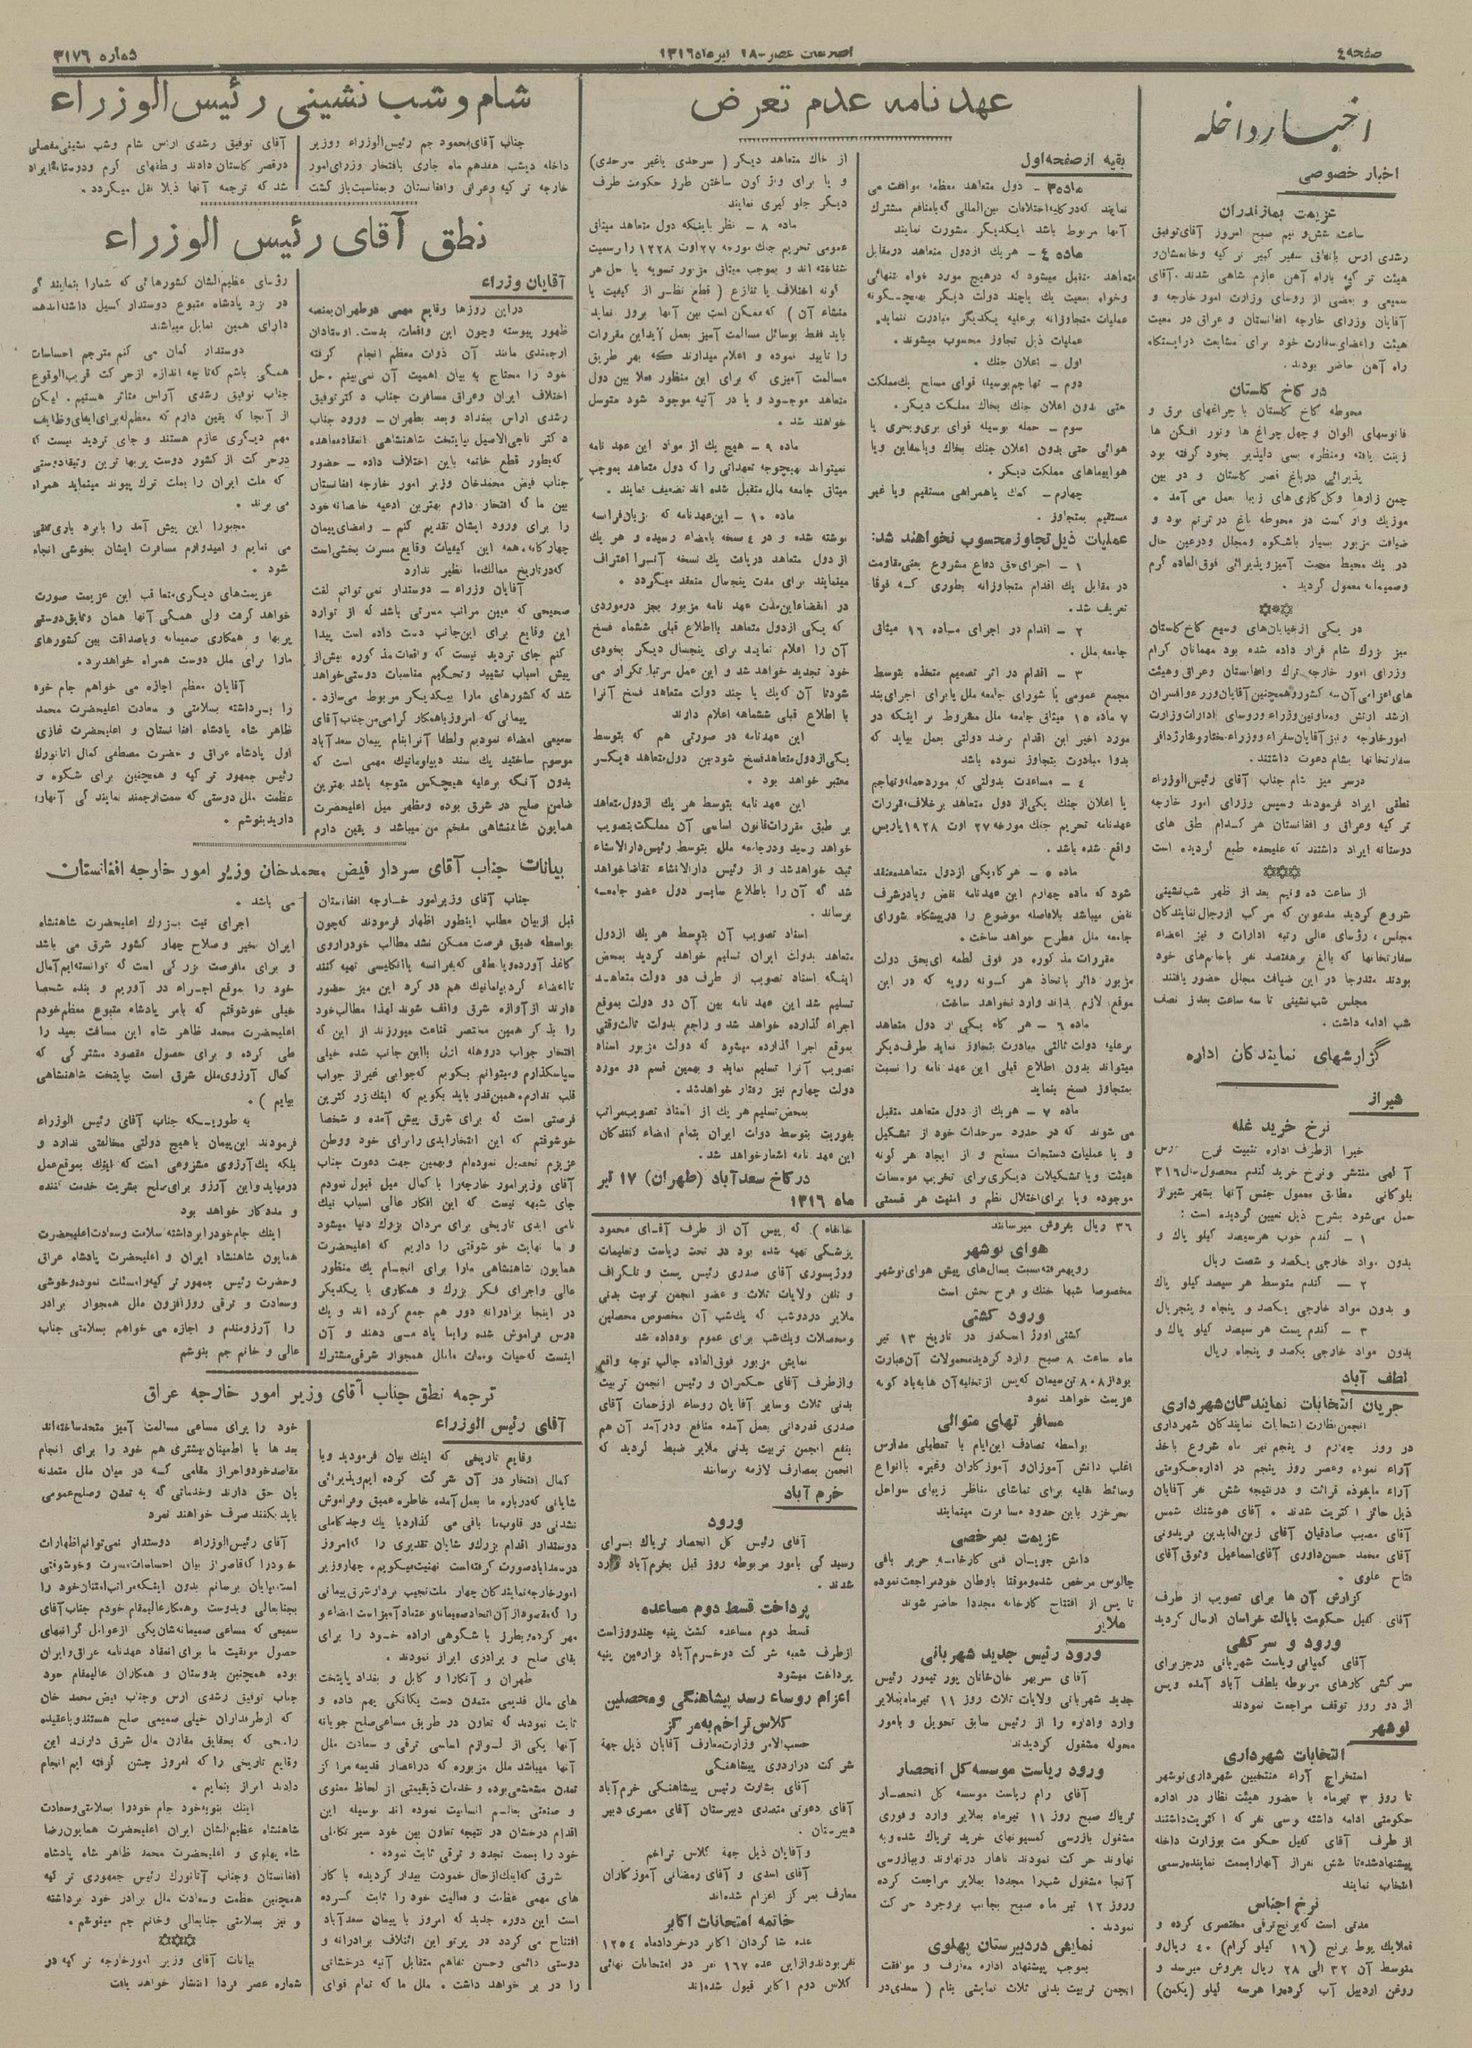 صفحه ٤
عصر - ۱۸ تیر ماه ۱۳۱۶
شماره ۳۱۷٦
اخبار داخله
اخبار خصوصی
عزیمت بمازندران
ساعت شش و نیم صبح امروز آقای توفیق
رشدی ارس باتفاق سفیر کبیر ترکیه و خانمشان و
هیئت ترکیه براه آهن عازم شاهی شدند. آقای
سمیعی و بعضی از روسای وزارت امور خارجه و
آقایان وزرای خارجه افغانستان و عراق در معیت
هیئت و اعضای سفارت خود برای مشایعت در ایستگاه
راه آهن حاضر بودند.
در کاخ گلستان
محوطه کاخ گلستان با چراغهای برق و
فانوسهای الوان و چهل چراغ ها و نور افکن ها
زینت یافته و منظره بسی دلپذیر بخود گرفته بود
پذیرائی در باغ قصر گلستان و در بین
چمن زارها و گل کاری های زیبا بعمل می آمد .
موزیک وارکست در محوطه باغ در ترنم بود و
ضیافت مزبور بسیار باشکوه و مجلل و در عین حال
در یک محیط صحبت آمیز و پذیرائی فوق العاده گرم
و صمیمانه معمول گردید .
در یکی از خیابان‌های وسیع کاخ گلستان
میز بزرک شام قرار داده شده بود مهمانان گرام
وزرای امور خارجه ترک و افغانستان و عراق و هیئت
های اعزامی آن سه کشور و همچنین آقایان وزراء و افسران
ارشد ارتش و معاونین وزراء و روسای ادارات وزارت
امور خارجه و نیز آقایان سفراء و وزراء مختار و شارژدافر
سفارتخانها بشام دعوت داشتند.
در سر میز شام جناب آقای رئیس الوزراء
نطقی ایراد فرمودند و سپس وزرای امور خارجه
ترکیه و عراق و افغانستان هر کدام نطق های
دوستانه ایراد داشتند که علیحده طبع گردیده است
از ساعت ده و نیم بعد از ظهر شب نشینی
شروع گردید مدعوین که مرکب از رجال نمایندگان
مجلس، رؤسای عالی رتبه ادارات و نیز اعضاء
سفارتخانها که بالغ بر هفتصد نفر با خانم‌های خود
بودند متدرجا در این ضیافت مجلل حضور یافتند
مجلس شب نشینی تا سه ساعت بعد از نصف
شب ادامه داشت .
گزارشهای نمایندگان اداره
شیراز
نرخ خرید غله
اخیرا از طرف اداره تثبیت نرخ
آگهی منتشر و نرخ خرید گندم محصول سال ۳۱٦
بلوکاتی مطابق معمول جنس آنها بشهر شیراز
حمل می‌شود بشرح ذیل تعیین گردیده است :
۱ - گندم خوب هر سیصد کیلو پاک و
بدون مواد خارجی یکصد و شصت ریال
۲ - گندم متوسط هر سیصد کیلو پاک
و بدون مواد خارجی یکصد و پنجاه و پنجریال
۳ - گندم پست هر سیصد کیلو پاک و
بدون مواد خارجی یکصد و پنجاه ریال
لطف آباد
جریان انتخابات نمایندگان شهرداری
انجمن نظارت انتخابات نمایندگان شهرداری
در روز چهارم و پنجم تیر ماه شروع باخذ
آراء نموده و عصر روز پنجم در اداره حکومتی
آراء ماخوذه قرائت و در نتیجه شش نفر آقایان
ذیل حائز اکثریت شدند . آقای هوشنک شمس
آقای مصیب صادقیان آقای زین‌العابدین فریدونی
آقای محمد حسن داوری آقای اسماعیل وثوق آقای
فتاح علوی .
گزارش آن ها برای تصویب از طرف
آقای کفیل حکومت بایالت خراسان ارسال گردید
ورود و سرکشی
آقای کمپانی ریاست شهربانی درجز برای
سرکشی کارهای مربوطه بلطف آباد آمده و پس
از دو روز توقف مراجعت نمودند
نوشهر
انتخابات شهرداری
استخراج آراء منتخبین شهرداری نوشهر
تا روز ۳ تیرماه با حضور هیئت نظار در اداره
حکومتی ادامه داشته و سی نفر که اکثریت داشتند
از طرف آقای کفیل حکومت بوزارت داخله
پیشنهاد شده تا شش نفر از آنها را بسمت نماینده رسمی
انتخاب نمایند
نرخ اجناس
مدتی است که برنج ترقی مختصری کرده و
فعلا یک پوط برنج (۱٦ کیلو گرام) ٤۰ ریال و
متوسط آن ۳۲ الی ۲۸ ریال بفروش میرسد و
روغن اردبیل آب کرده را هر سه کیلو (یکمن)
عهدنامه عدم تعرض
بقیه از صفحه اول
ماده ۳ - دول متعاهد معظمه موافقت می
نمایند که در کلیه اختلافات بین‌المللی که با منافع مشترک
آنها مربوط باشد با یکدیگر مشورت نمایند
ماده ٤ - هر یک از دول متعاهد در مقابل
متعاهد متقبل میشود که در هیچ مورد خواه تنهائی
و خواه بمعیت یک یا چند دولت دیگر بهیچگونه
عملیات متجاوزانه بر علیه یکدیگر مبادرت ننماید.
عملیات ذیل تجاوز محسوب میشوند.
اول - اعلان جنک .
دوم - تهاجم بوسیله قوای مسلح یک مملکت
حتی بدون اعلان جنک بخاک مملکت دیگر.
سوم - حمله بوسیله قوای بری و بحری یا
هوائی حتی بدون اعلان جنک بخاک و یا سفاین و یا
هواپیماهای مملکت دیگر.
چهارم - کمک یا همراهی مستقیم و یا غیر
مستقیم بمتجاوز .
عملیات ذیل تجاوز محسوب نخواهند شد:
۱ - اجرای حق دفاع مشروع یعنی مقاومت
در مقابل یک اقدام متجاوزانه بطوری که فوقا
تعریف شد.
۲ - اقدام در اجرای ماده ۱٦ میثاق
جامعه ملل .
۳ - اقدام در اثر تصمیم متخذه بتوسط
مجمع عمومی یا شورای جامعه ملل یا برای اجرای بند
۷ ماده ۱٥ میثاق جامعه ملل مشروط بر اینکه در
مورد اخیر این اقدام بر ضد دولتی بعمل بیاید که
بدوا مبادرت بتجاوز نموده باشد
٤ - مساعدت بدولتی که مورد حمله و تهاجم
یا اعلان جنک یکی از دول متعاهد بر خلاف مقررات
عهدنامه تحریم جنک مورخه ۲۷ اوت ۱۹۲۸ پاریس
واقع شده باشد .
ماده ٥ - هر گاه یکی از دول متعاهد معتقد
شود که ماده چهارم این عهدنامه نقض و یا در شرف
نقض میباشد بلافاصله موضوع را در پیشگاه شورای
جامعه ملل مطرح خواهد ساخت .
مقررات مذکوره در فوق لطمه ای بحق دولت
مزبور دائر باتخاذ هر گونه رویه که در این
موقع لازم بداند وارد نخواهد ساخت .
ماده ٦ - هر گاه یکی از دول متعاهد
بر علیه دولت ثالثی مبادرت بتجاوز نماید طرف دیگر
میتواند بدون اطلاع قبلی این عهد نامه را نسبت
بمتجاوز فسخ بنماید
ماده ۷ - هر یک از دول متعاهد متقبل
می شوند که در حدود سرحدات خود از تشکیل
و یا عملیات دستجات مسلح و از ایجاد هر گونه
هیئت و یا تشکیلات دیگری برای تخریب موسسات
موجوده و یا برای اختلال نظم و امنیت هر قسمتی
از خاک متعاهد دیگر ( سرحدی یا غیر سرحدی)
و یا برای واژگون ساختن طرز حکومت طرف
دیگر جلوگیری نمایند
ماده ۸ - نظر باینکه دول متعاهد میثاق
عمومی تحریم جنک مورخه ۲۷ اوت ۱۹۲۸ را برسمیت
شناخته اند و بموجب میثاق مزبور تسویه یا حل هر
گونه اختلاف یا تنازع ( قطع نظر از کیفیت یا
منشاء آن ) که ممکن است بین آنها بروز نماید
باید فقط بوسائل مسالمت آمیز بعمل آید این مقررات
را تایید نموده و اعلام میدارند که بهر طریق
مسالمت آمیزی که برای این منظور فعلا بین دول
متعاهد موجود و یا در آتیه موجود شود متوسل
خواهند شد .
ماده ۹ - هیچ یک از مواد این عهد نامه
نمیتواند بهیچوجه تعهداتی را که دول متعاهد بموجب
میثاق جامعه ملل متقبل شده اند تضعیف نمایند .
ماده ۱۰ - این عهدنامه که بزبان فرانسه
نوشته شده و در ٤ نسخه بامضاء رسیده و هر یک
از دول متعاهد دریافت یک نسخه آنرا اعتراف
مینمایند برای مدت پنجسال منعقد میگردد .
در انقضاء این مدت عهد نامه مزبور بجز در موردی
که یکی از دول متعاهد با اطلاع قبلی ششماه فسخ
آن را اعلام نماید برای پنجسال دیگر بخودی
خود تجدید خواهد شد و این عمل مرتبا تکرار می
شود تا آن که یک یا چند دولت متعاهد فسخ آنرا
با اطلاع قبلی ششماهه اعلام دارند
این عهدنامه در صورتی هم که بتوسط
یکی از دول متعاهد فسخ شود بین دول متعاهد دیگر
معتبر خواهد بود .
این عهد نامه بتوسط هر یک از دول متعاهد
بر طبق مقررات قانون اساسی آن مملکت بتصویب
خواهد رسید و در جامعه ملل بتوسط رئیس دارالانشاء
ثبت خواهد شد و از رئیس دارالانشاء تقاضا خواهد
شد که آن را باطلاع سایر دول عضو جامعه
برساند .
اسناد تصویب آن بتوسط هر یک از دول
متعاهد بدولت ایران تسلیم خواهد گردید بمحض
اینکه اسناد تصویب از طرف دو دولت متعاهد
تسلیم شد این عهد نامه بین آن دو دولت بموقع
اجراء گذارده خواهد شد و راجع بدولت ثالث وقتی
بموقع اجرا گذارده میشود که دولت مزبور اسناد
تصویب آنرا تسلیم نماید و بهمین قسم در مورد
دولت چهارم نیز رفتار خواهد شد.
بمحض تسلیم هر یک از اسناد تصویب مراتب
بفوریت بتوسط دولت ایران بتمام امضاء کنندگان
این عهد نامه اشعار خواهد شد.
در کاخ سعد آباد (طهران) ۱۷ تیر
ماه ۱۳۱٦
۳٦ ریال بفروش میرسانند
هوای نوشهر
رویهمرفته نسبت بسال‌های پیش هوای نوشهر
مخصوصا شبها خنک و فرح بخش است
ورود کشتی
کشتی در تاریخ ۱۳ تیر
ماه ساعت ۸ صبح وارد گردید محمولات آن عبارت
بود از ۸۰۸ تن سیمان که پس از تخلیه آن
عزیمت خواهد نمود
مسافرتهای متوالی
بواسطه تصادف این ایام با تعطیلی مدارس
اغلب دانش آموزان و آموزگاران و غیره با انواع
وسائط نقلیه برای تماشای مناظر زیبای سواحل
بحر خزر باین حدود مسافرت مینمایند
عزیمت بمرخصی
دانش جویان فنی کارخانه حریر بافی
چالوس مرخص شده و موقتا باوطان خود مراجعت نموده
تا پس از افتتاح کارخانه مجددا حاضر شوند
ملایر
ورود رئیس جدید شهربانی
آقای سربهر خان‌خانان پور تیمور رئیس
جدید شهربانی ولایات ثلاث روز ۱۱ تیر ماه بملایر
وارد و اداره را از رئیس سابق تحویل و بامور
محوله مشغول گردیدند
ورود ریاست موسسه کل انحصار
آقای رام ریاست موسسه کل انحصار
تریاک صبح روز ۱۱ تیرماه بملایر وارد و فوری
مشغول بازرسی کمسیونهای خرید تریاک شده و به
نهاوند حرکت نمودند ناهار در نهاوند و ببازرسی
آنجا مشغول شب را مجددا بملایر مراجعت کرده
و روز ۱۲ تیر ماه صبح بجانب بروجرد حرکت
نمودند .
نمایش در دبیرستان پهلوی
بموجب پیشنهاد اداره معارف و موافقت
انجمن تربیت بدنی ثلاث نمایشی بنام ( سعدی در
خانقاه) که پیس آن از طرف آقای محمود
پزشکی تهیه شده بود در تحت ریاست و تعلیمات
و رژیسوری آقای صدری رئیس پست و تلگراف
و تلفن ولایات ثلاث و عضو انجمن تربیت بدنی
ملایر در دو شب که یک‌شب آن مخصوص محصلین
و محصلات و یک‌شب برای عموم بود داده شد
نمایش مزبور فوق‌العاده جالب توجه واقع
و از طرف آقای حکمران و رئیس انجمن تربیت
بدنی ثلاث و سایر آقایان روساء از زحمات آقای
صدری قدردانی بعمل آمده منافع و درآمد آن هم
بنفع انجمن تربیت بدنی ملایر ضبط گردید که
انجمن بمصارف لازمه برسانند
خرم آباد
ورود
آقای رئیس کل انحصار تریاک برای
رسیدگی بامور مربوطه روز قبل بخرم‌آباد وارد
شدند .
پرداخت قسط دوم مساعده
قسط دوم مساعده کشت پنبه چند روز است
از طرف شعبه شرکت در خرم‌آباد بزارعین پنبه
پرداخت میشود
اعزام روساء رسد پیشاهنگی و محصلین
کلاس تراخم بمرکز
حسب‌الامر وزارت معارف آقایان ذیل جهة
شرکت در اردوی پیشاهنگی
آقای بشارت رئیس پیشاهنگی خرم‌آباد
آقای دعوتی متصدی دبیرستان آقای مصری دبیر
دبیرستان .
و آقایان ذیل جهة کلاس تراخم
آقای اسدی و آقای رمضانی آموزگاران
معارف بمرکز اعزام شده‌اند
خاتمه امتحانات اکابر
عده شاگردان اکابر در خرداد ماه ۱۲٥٤
نفر بودند و از این عده ۱٦۷ نفر در امتحانات نهائی
کلاس دوم اکابر قبول شده‌اند
شام و شب نشینی رئیس الوزراء
جناب آقای محمود جم رئیس الوزراء و وزیر
داخله دیشب هفدهم ماه جاری بافتخار وزرای امور
خارجه ترکیه و عراق و افغانستان و بمناسبت بازگشت
آقای توفیق رشدی ارس شام و شب نشینی مفصلی
در قصر گلستان دادند و نطقهای گرم و دوستانه ایراد
شد که ترجمه آنها ذیلا نقل میگردد .
نطق آقای رئیس الوزراء
آقایان وزراء
در این روزها وقایع مهمی در طهران بمنصه
ظهور پیوسته و چون این واقعات بدست اوستادان
ارجمندی مانند آن ذوات معظم انجام گرفته
خود را محتاج به بیان اهمیت آن نمی‌بینم . حل
اختلاف ایران و عراق مسافرت جناب دکتر توفیق
رشدی اراس ببغداد و بعد بطهران - ورود جناب
دکتر ناجی‌الاصیل بپایتخت شاهنشاهی انعقاد معاهده
که بطور قطع خاتمه باین اختلاف داده - حضور
جناب فیض محمد خان وزیر امور خارجه افغانستان
بین ما که افتخار دارم بهترین ادعیه خالصانه خود
را برای ورود ایشان تقدیم کنم - و امضای پیمان
چهارگانه، همه این کیفیات وقایع مسرت بخشی است
که در تاریخ ممالک ما نظیر ندارد
آقایان وزراء - دوستدار نمی توانم لغت
صحیحی که مبین مراتب مسرتی باشد که از توارد
این وقایع برای این‌جانب دست داده است پیدا
کنم جای تردید نیست که واقعات مذکوره بیش از
پیش اسباب تشیید و تحکیم مناسبات دوستی خواهد
شد که کشورهای ما را بیکدیگر مربوط می‌سازد .
پیمانی که امروز با همکار گرامی من جناب آقای
سمیعی امضاء نمودیم و لطفا آنرا بنام پیمان سعدآباد
موسوم ساختید یک سند دیپلوماتیک مهمی است که
بدون آنکه بر علیه هیچکس متوجه باشد بهترین
ضامن صلح در شرق بوده و مظهر میل اعلیحضرت
همایون شاهنشاهی مفخم من میباشد و یقین دارم
رؤسای عظیم‌الشان کشورهائی که شما را بنمایندگی
در نزد پادشاه متبوع دوستدار گسیل داشته‌اند هم
دارای همین تمایل میباشند
دوستدار گمان می کنم مترجم احساسات
همگی باشم که تا چه اندازه از حرکت قریب‌الوقوع
جناب توفیق رشدی آراس متاثر هستیم . لیکن
از آنجا که یقین دارم که معظم‌له برای ایفای وظایف
مهم دیگری عازم هستند و جای تردید نیست که
در حرکت از کشور دوست پربها ترین وثیقه دوستی
که ملت ایران را بملت ترک پیوند مینماید همراه
می برند .
مجبورا این پیش آمد را بابرد باری تلقی
می نمایم و امیدوارم مسافرت ایشان بخوشی انجام
شود .
عزیمت‌های دیگری متعاقب این عزیمت صورت
خواهد گرفت ولی همگی آنها همان وثایق دوستی
پربها و همکاری صمیمانه و با صداقت بین کشورهای
ما را برای ملل دوست همراه خواهد برد.
آقایان معظم اجازه می خواهم جام خود
را برداشته بسلامتی و سعادت اعلیحضرت محمد
ظاهر شاه پادشاه افغانستان و اعلیحضرت غازی
اول پادشاه عراق و حضرت مصطفی کمال اتاتورک
رئیس جمهور ترکیه و همچنین برای شکوه و
عظمت ملل دوستی که سمت ارجمند نمایندگی آنها را
دارید بنوشم .
بیانات جناب آقای سردار فیض محمدخان وزیر امور خارجه افغانستان
جناب آقای وزیر امور خارجه افغانستان
قبل از بیان مطلب اینطور اظهار فرمودند که چون
بواسطه ضیق فرصت ممکن نشد مطالب خود را روی
کاغذ آورده و یا نطقی که بفرانسه یا انگلیسی تهیه کنند
تا اعضاء کردیپلماتیک هم در گرد این میز حضور
دارند از آوازه شرق واقف شوند لهذا مطالب خود
را بذکر همین مختصر قناعت میورزند از این که
افتخار جواب در وهله ازل با این جانب شده خیلی
سپاسگذارم و میتوانم بگویم که جوابی غیر از جواب
قلب ندارم. همین قدر باید بگویم که اینک زرگترین
فرصتی است که برای شرق پیش آمده و شخصا
خوشوقتم که این افتخار ابدی را برای خود و وطن
عزیزم تحصیل نموده‌ام و بهمین جهت دعوت جناب
آقای وزیر امور خارجه را با کمال میل قبول نمودم
جای شبهه نیست که این افکار عالی اسباب نیک
نامی ابدی تاریخی برای مردان بزرک دنیا میشود
و ما نهایت خوشوقتی را داریم که اعلیحضرت
همایون شاهنشاهی ما را برای انجام یک منظور
عالی و اجرای فکر بزرک و همکاری با یکدیگر
در اینجا برادرانه دور هم جمع کرده اند و یک
درس فراموش شده را بما یاد می دهند و آن
اینست که حیات و ممات ما ملل همجوار شرقی مشترک
می باشد .
اجرای نیت بزرک اعلیحضرت شاهنشاه
ایران بخیر و صلاح چهار کشور شرق می باشد
و برای ما فرصت بزرگی است که توانسته‌ایم آمال
خود را بموقع اجراء در آوریم و بنده شخصا
خیلی خوشوقتم که بامر پادشاه متبوع معظم خودم
اعلیحضرت محمد ظاهر شاه این مسافت بعید را
طی کرده و برای حصول مقصود مشترکی که
کمال آرزوی ملل شرق است بپایتخت شاهنشاهی
بیایم ) .
به طوریکه جناب آقای رئیس الوزراء
فرمودند این پیمان با هیچ دولتی مخالفتی ندارد و
بلکه یک آرزوی مشروعی است که اینک بموقع عمل
در میاید و این آرزو برای صلح بشریت خدمت کننده
و مددکار خواهد بود
اینک جام خود را برداشته بسلامت و سعادت اعلیحضرت
همایون شاهنشاه ایران و اعلیحضرت پادشاه عراق
و حضرت رئیس جمهور ترکیه و استدعا نموده و خوشی
و سعادت و ترقی روزافزون ملل همجوار برادر
را آرزومندم و اجازه می خواهم بسلامتی جناب
عالی و خانم جم بنوشم
ترجمه نطق جناب آقای وزیر امور خارجه عراق
آقای رئیس الوزراء
وقایع تاریخی که اینک بیان فرمودید و با
کمال افتخار در آن شرکت کرده ایم و پذیرائی
شایانی که درباره ما بعمل آمده خاطره عمیق و فراموش
نشدنی در قلوب ما باقی می گذارد با یک وجد کاملی
دوستدار اقدام بزرک و شایان تقدیری را که امروز
در سعد آباد صورت گرفته است تهنیت میگویم . چهار وزیر
امور خارجه نمایندگان چهار ملت نجیب برادر شرقی پیمانی
را که مقصود از آن اتحاد صمیمانه و اعتماد آمیز است امضاء و
مهر کرده و بطرز باشکوهی اراده خود را برای
بقای صلح و برادری ابراز نمودند .
طهران و آنکارا و کابل و بغداد پایتخت
های ملل قدیمی متمدن دست یگانگی بهم داده و
ثابت نمودند که تعاون در طریق مساعی صلح جویانه
آنها یکی از لوازم اساسی ترقی و سعادت ملل
آنها میباشد ملل مزبوره که در اعصار قدیمه مرا کز
تمدن مشعشعی بوده و خدمات ذیقیمتی از لحاظ معنوی
و صنعتی بعالم انسانیت نموده اند بوسیله این
اقدام درخشان در نتیجه تعاون بین خود سیر تکاملی
خود را بسمت تجدد و ترقی ثابت نمودند .
شرق که اینک از حال خمودت بیدار گردیده با کار
های مهمی عظمت و فعالیت خود را ثابت کرده
است این دوره جدید که امروز با پیمان سعد آباد
افتتاح می گردد در پرتو این ائتلاف برادرانه و
دوستی دائمی و حسن تفاهم متقابل آتیه درخشانی
را در بر خواهد داشت . ملل ما که تمام قوای
خود را برای مساعی مسالمت آمیز متحد ساخته‌اند
بعد ها با اطمینان بیشتری هم خود را برای انجام
مقاصد خود و احراز مقامی که در میان ملل متمدنه
بان حق دارند و خدماتی که به تمدن و صلح عمومی
باید بکنند صرف خواهند نمود
آقای رئیس الوزراء دوستدار نمی‌توانم اظهارات
خود را که قاصر از بیان احساسات مسرت و خوشوقتی
است بپایان برسانم بدون اینکه مراتب امتنان خود را
بجنابعالی و بدوست و همکار عالیمقام خودم جناب آقای
سمیعی که مساعی صمیمانه شان یکی از عوامل گرانبهای
حصول موفقیت ما برای انعقاد عهدنامه عراق و ایران
بوده همچنین بدوستان و همکاران عالیمقام خود
جناب توفیق رشدی ارس و جناب فیض محمد خان
که از طرفداران خیلی صمیمی صلح هستند و با عقیده
راسخی که بحقایق مقارن ملل شرق دارند این
وقایع تاریخی را که امروز جشن گرفته ایم انجام
دادند ابراز بنمایم .
اینک بنوبه خود جام خود را بسلامتی و سعادت
شاهنشاه عظیم‌الشان ایران اعلیحضرت همایون رضا
شاه پهلوی و اعلیحضرت محمد ظاهر شاه پادشاه
افغانستان و جناب آتاتورک رئیس جمهوری ترکیه
همچنین عظمت و سعادت ملل برادر خود برداشته
و نیز بسلامتی جنابعالی و خانم جم مینوشم .
بیانات آقای وزیر امور خارجه ترکیه در
شماره عصر فردا انتشار خواهد یافت